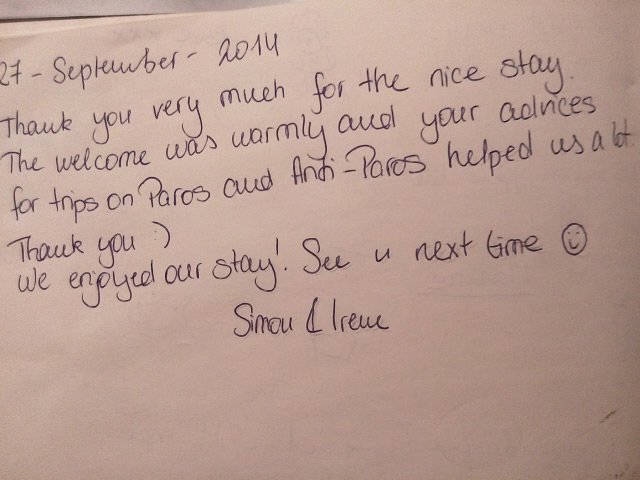 27 - September - 2014
Thank you very much for the nice stay.
The welcome was warmly and your advices
for trips on Paros and Anti-Paros helped us a lot.
Thank you :)
We enjoyed our stay! See u next time ☺
Simon & Irene